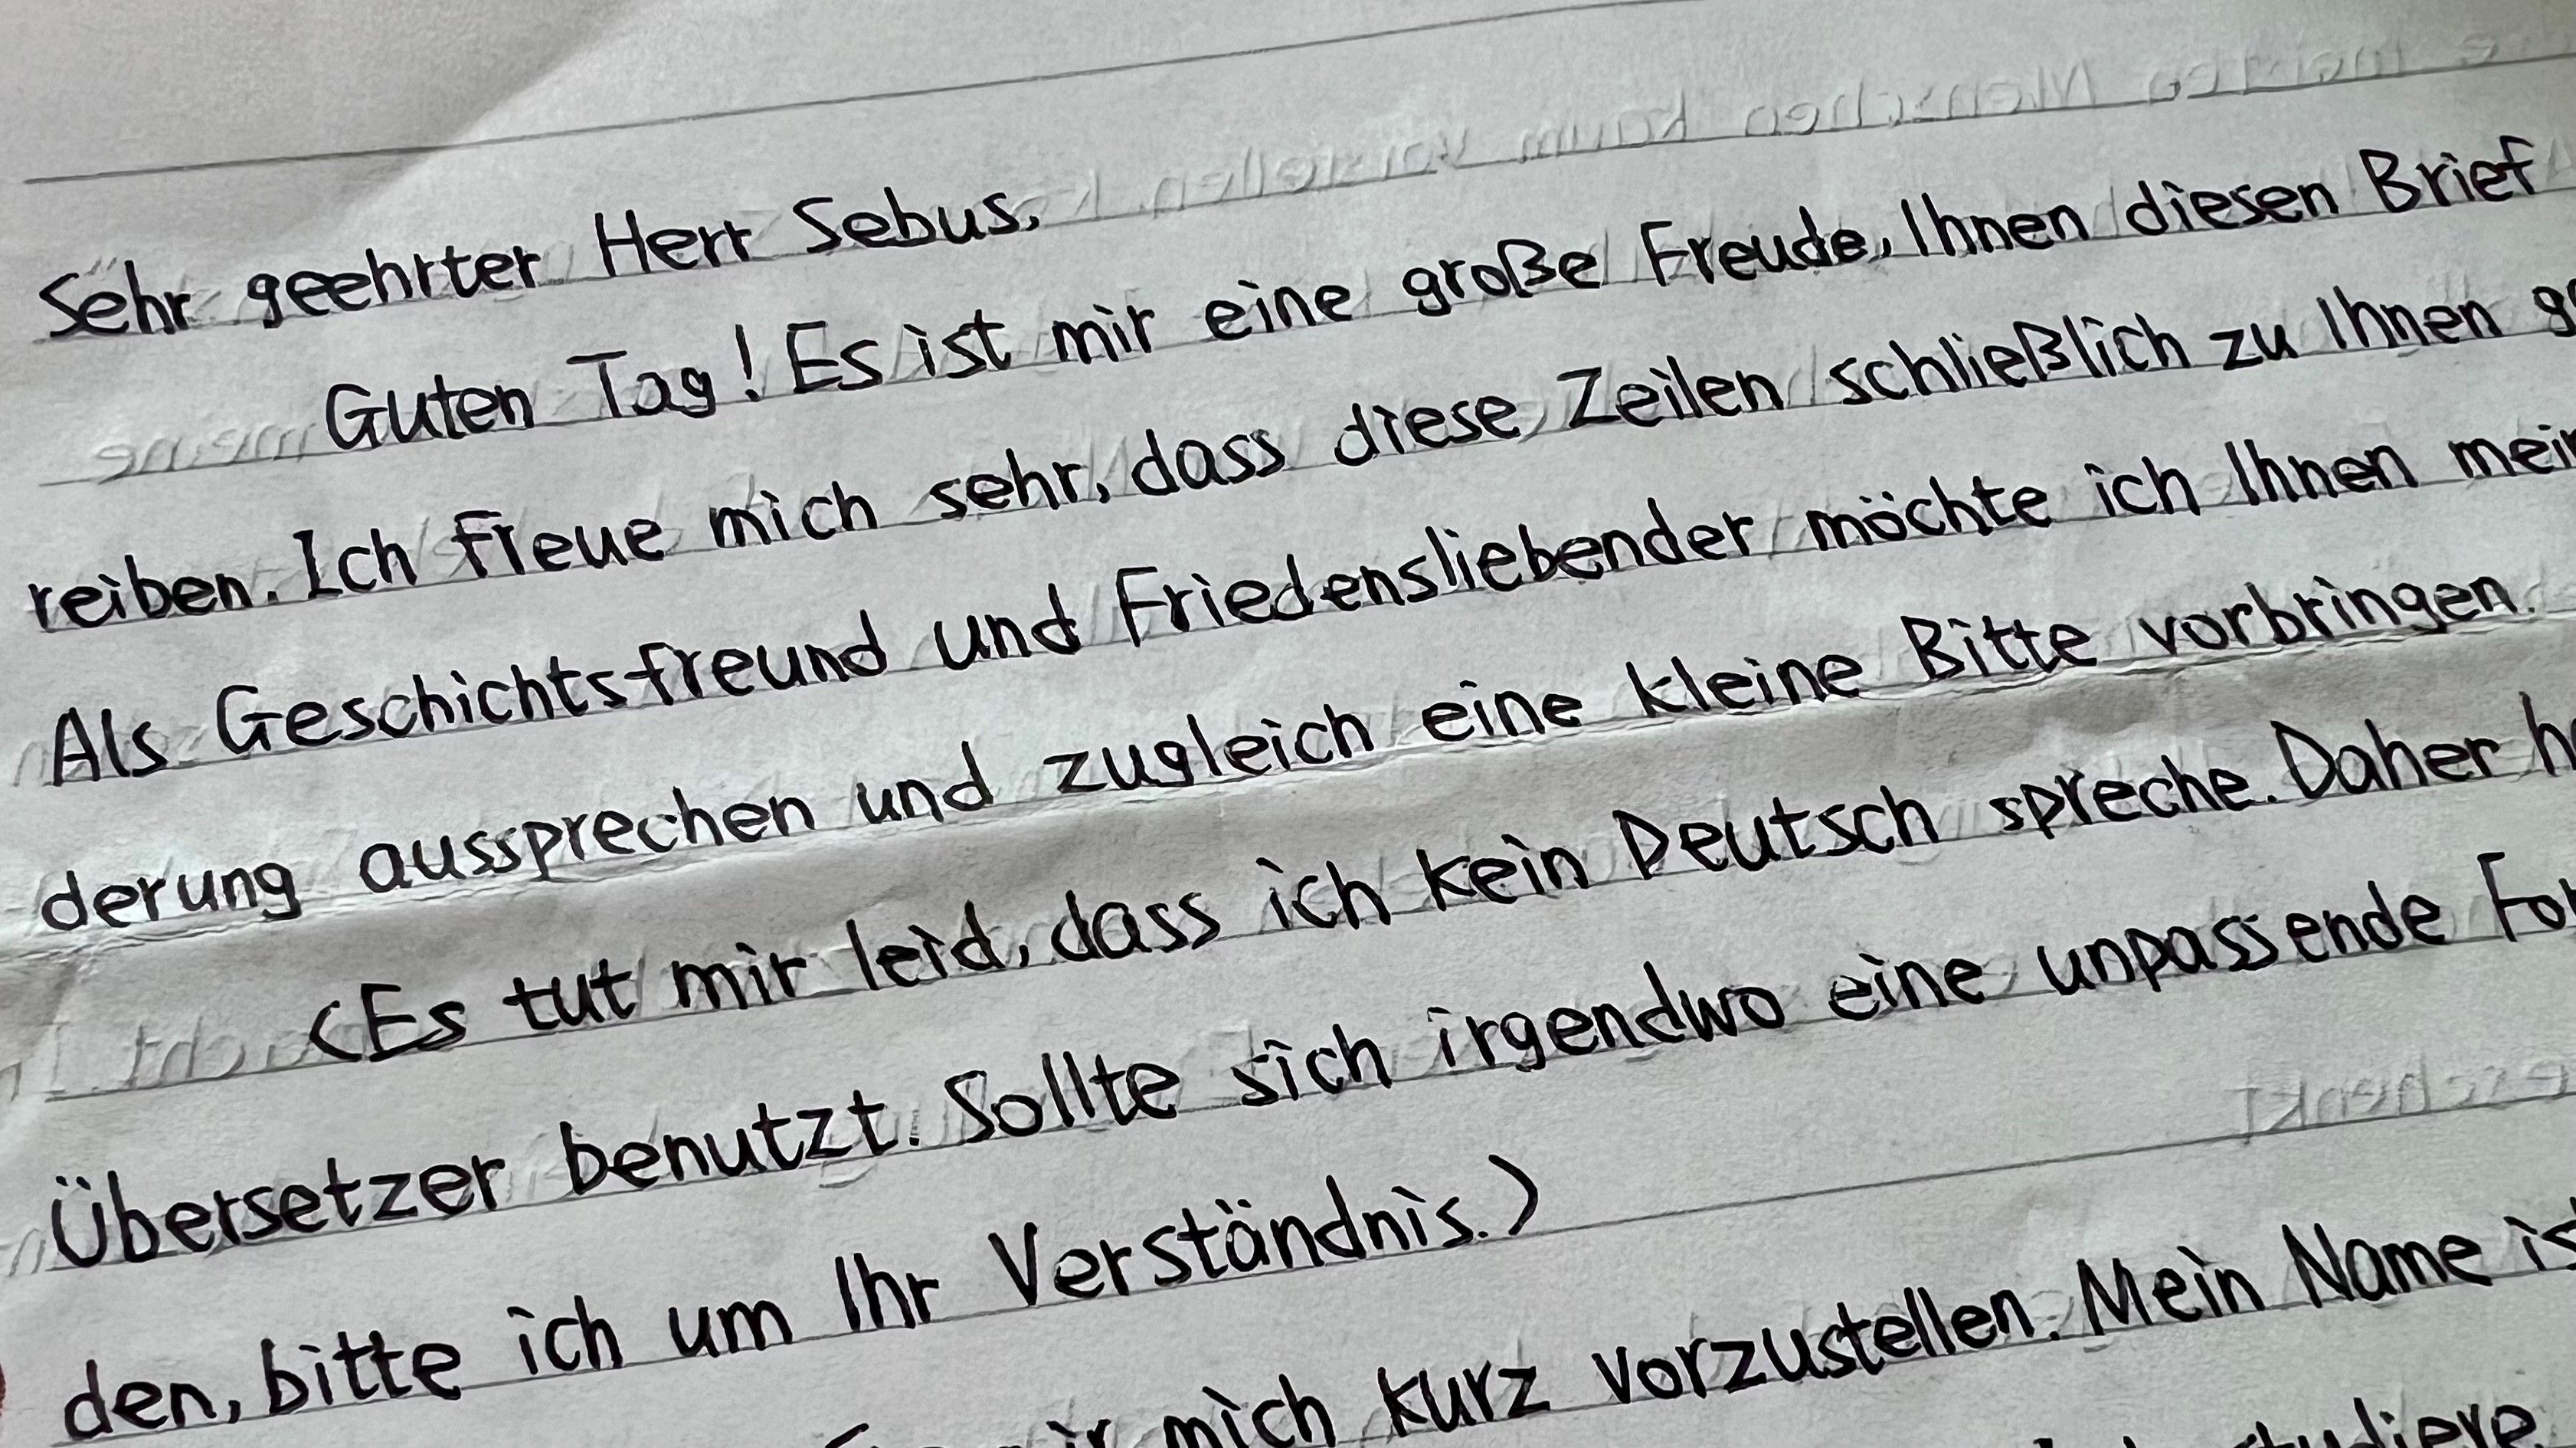 Sehr geehrter Herr Sebus,
Guten Tag! Es ist mir eine große Freude, Ihnen diesen Brief
reiben. Ich freue mich sehr, dass diese Zeilen schließlich zu Ihnen
Als Geschichtsfreund und Friedensliebender möchte ich Ihnen
derung aussprechen und zugleich eine kleine Bitte vorbringen.
(Es tut mir leid, dass ich kein Deutsch spreche. Daher
Übersetzer benutzt. Sollte sich irgendwo eine unpassende
den, bitte ich um Ihr Verständnis.)
mich kurz vorzustellen. Mein Name